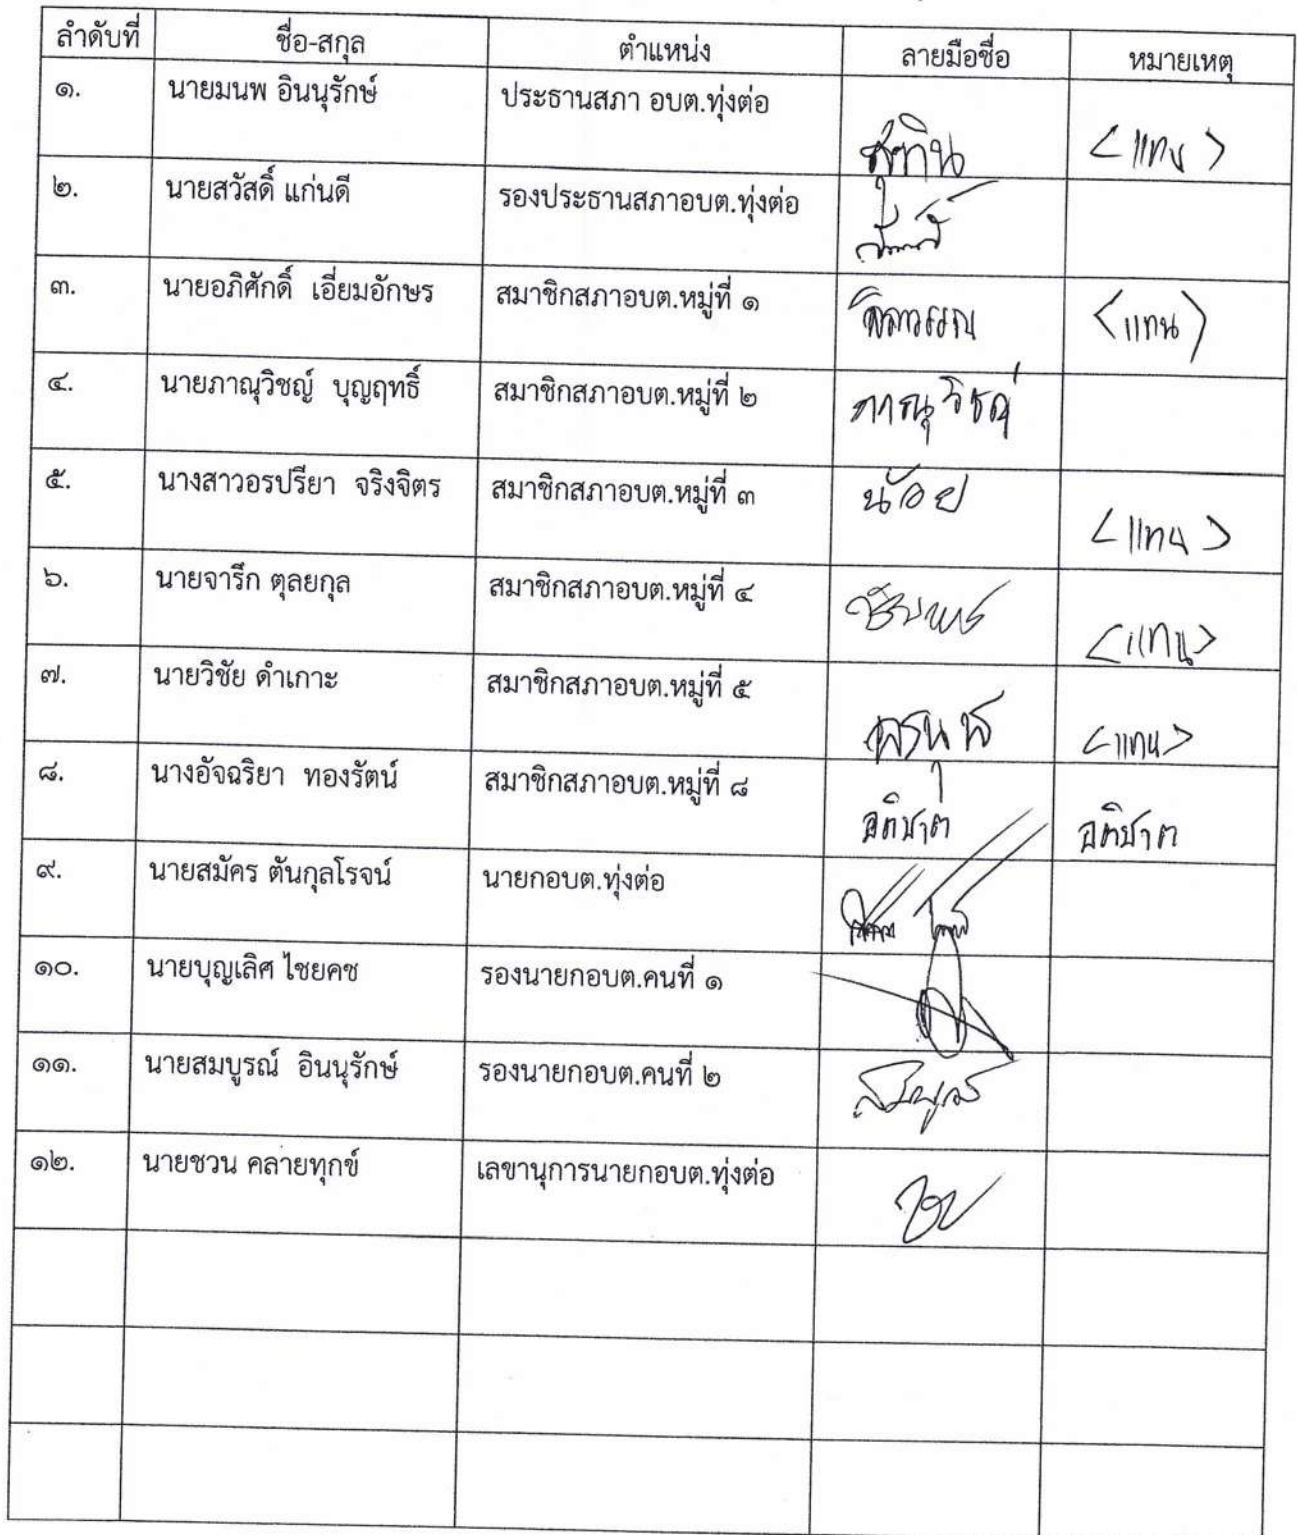 ลำดับที่ ชื่อ-สกุล ตำแหน่ง ลายมือชื่อ หมายเหตุ
๑. นายมนพ อินนุรักษ์ ประธานสภา อบต.ทุ่งต่อ <แทน>
๒. นายสวัสดิ์ แก่นดี รองประธานสภาอบต.ทุ่งต่อ
๓. นายอภิศักดิ์ เอี่ยมอักษร สมาชิกสภาอบต.หมู่ที่ ๑ <แทน>
๔. นายภาณุวิชญ์ บุญฤทธิ์ สมาชิกสภาอบต.หมู่ที่ ๒ ภาณุวิชญ์
๕. นางสาวอรปรียา จริงจิตร สมาชิกสภาอบต.หมู่ที่ ๓ น้อย <แทน>
๖. นายจารึก ตุลยกุล สมาชิกสภาอบต.หมู่ที่ ๔ <แทน>
๗. นายวิชัย ดำเกาะ สมาชิกสภาอบต.หมู่ที่ ๕ <แทน>
๘. นางอัจฉริยา ทองรัตน์ สมาชิกสภาอบต.หมู่ที่ ๘ อภิชาต อภิชาต
๙. นายสมัคร ตันกุลโรจน์ นายกอบต.ทุ่งต่อ
๑๐. นายบุญเลิศ ไชยคช รองนายกอบต.คนที่ ๑
๑๑. นายสมบูรณ์ อินนุรักษ์ รองนายกอบต.คนที่ ๒
๑๒. นายชวน คลายทุกข์ เลขานุการนายกอบต.ทุ่งต่อ